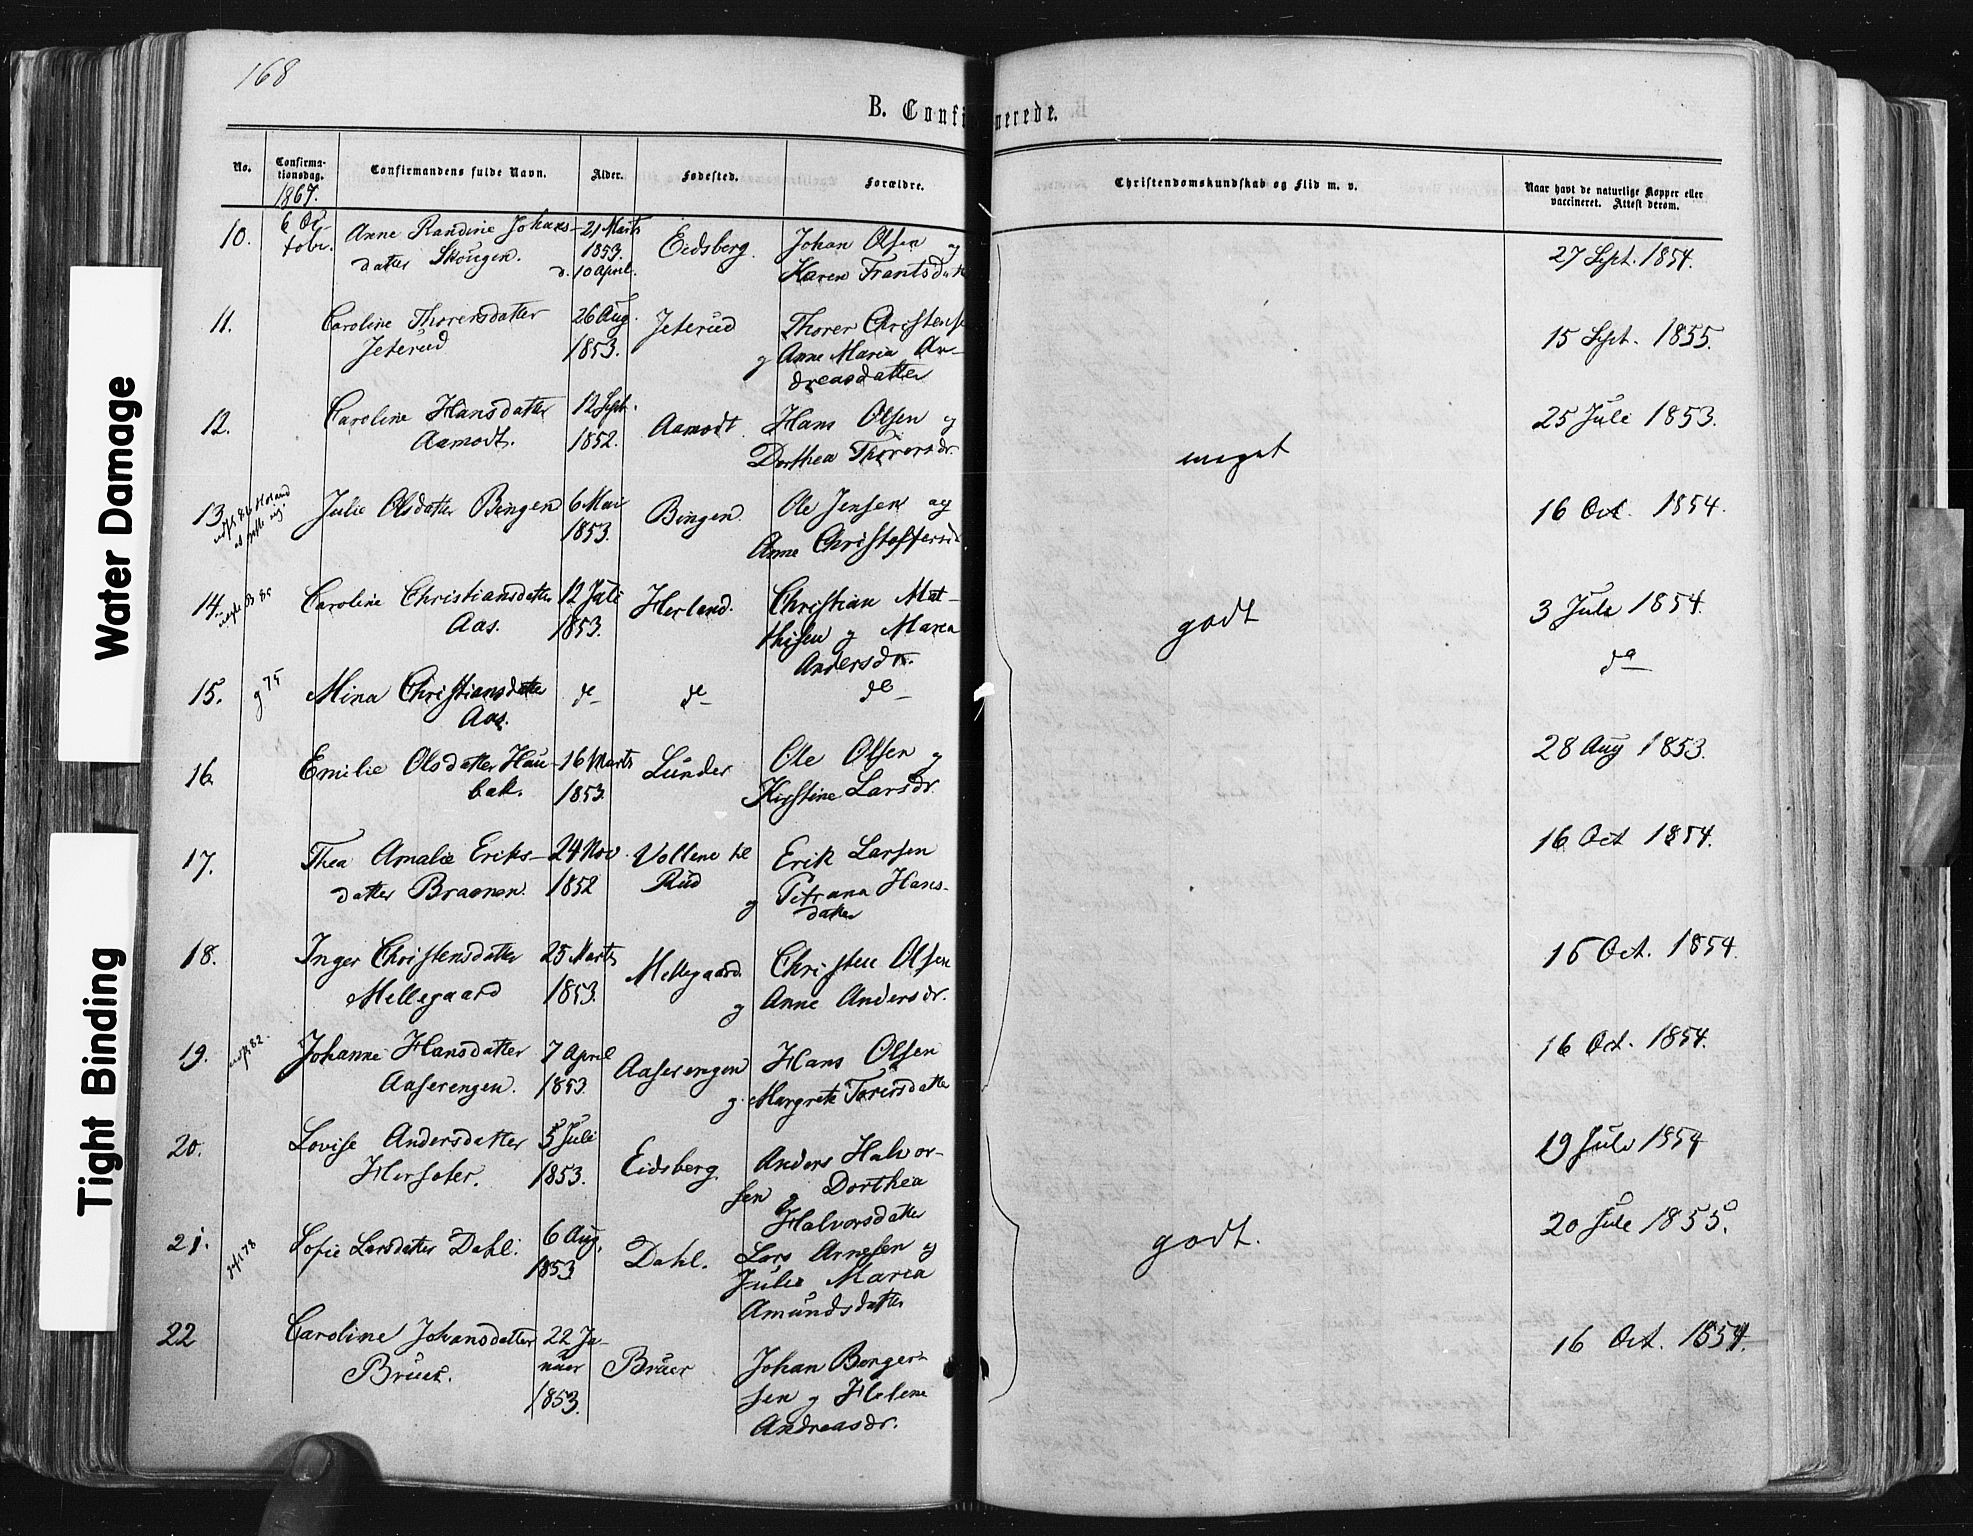 168
B. Confirmerede.
No.
Confirma-
tionsdag.
1867.
Confirmandens fulde Navn.
Alder.
Fødested.
Forældre.
Christendomskundskab og Flid m. v.
Naar havt de naturlige Kopper eller
vaccineret. Attest derom.
10.
6 Oc-
tobr.
Anne Randine Johans-
datter Skougen.
21 Marts
1853.
d. 10 April.
Eidsberg.
Johan Olsen og
Karen Frantsdatt
27 Sept. 1854.
11.
Caroline Thorersdatter
Jeterud
26 Aug.
1853.
Jeterud
Thorer Christens
g Anne Maria An-
dreasdatter
15 Sept. 1855.
12.
Caroline Hansdatter
Aamodt.
12 Sept.
1852.
Aamodt.
Hans Olsen og
Dorthea Thorersdr.
meget
25 Juli 1853.
13.
Julie Olsdatter Bingen
6 Mai
1853.
Bingen.
Ole Jensen og
Anne Christoffersd
16 Oct. 1854.
14.
Caroline Christiansdatter
Aas.
12 Juli
1853.
Herland.
Christian Mat-
thisen g Maria
Andersdr.
godt
3 Juli 1854.
15.
g 75
Mina Christiansdatter
Aas.
do
do
do
do
16.
Emilie Olsdatter Hau-
bak.
16 Marts
1853.
Lunder
Ole Olsen g
Kirstine Larsdr.
28 Aug 1853.
17.
Thea Amalie Eriks-
datter Braanen.
24 Nov
1852
Vollene
Rud
Erik Larsen
g Petrana Hans-
datter
16 Oct 1854.
18.
Inger Christensdatter
Mellegaard
25 Marts
1853.
Mellegaard.
Christen Olsen
g Anne Andersdr.
16 Oct. 1854.
19.
Johanne Hansdatter
Aaserengen.
7 April
1853.
Aaserengen
Hans Olsen
g. Margrete Torersdatter
16 Oct. 1854.
20.
Lovise Andersdatter
Hersæter.
5 Juli
1853.
Eidsberg.
Anders Halvor-
sen g Dorthea
Halvorsdatter
19 Juli 1854
21.
Sofie Larsdatter Dahl.
6 Aug.
1853
Dahl.
Lars Arnesen g
Julie Maria
Amundsdatter
godt.
20 Juli 1855.
22
Caroline Johansdatter
Bruer.
22 Ja-
nuar
1853.
Bruer
Johan Borger-
sen g Helene
Andreasdr.
16 Oct. 1854.
Water Damage
Tight Binding